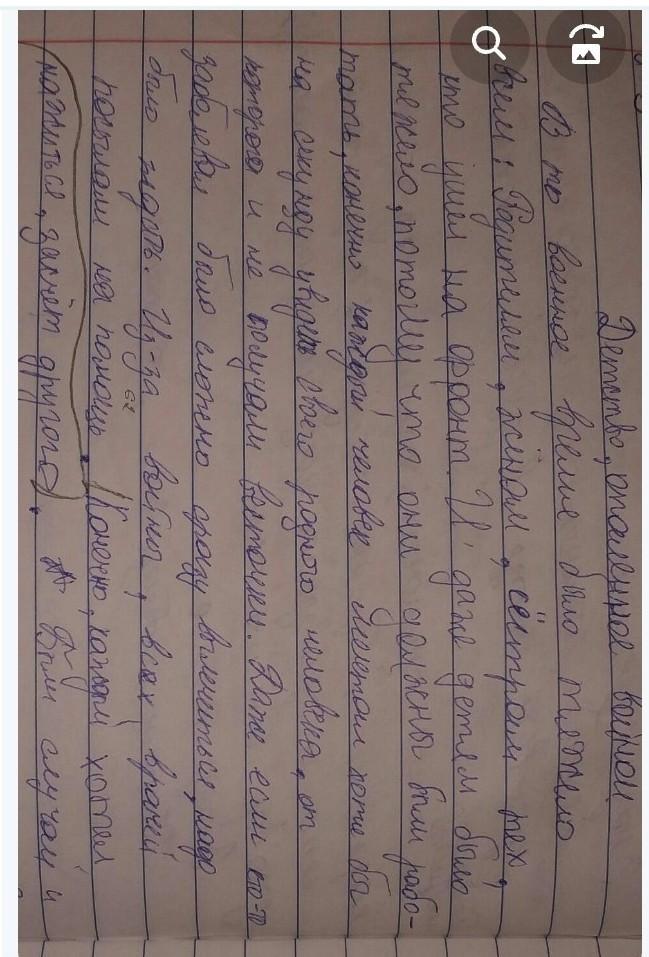 Детство, опаленное войной
В то военное время было тяжело
всем: Родителем, жёнам, сёстрам тех,
кто ушел на фронт. И даже детям было
тежело, потому что они должны были рабо-
тать, конечно каждый человек мечтал хотя бы
на секунду увидеть своего родного человека, от
которого и не получали весточки. Даже если кто-то
заболевал было сложно сразу вылечиться, надо
было ждать. Из-за войны, всех врачей
посылали на помощь. Конечно, каждый хотел
другого). Были случаи и